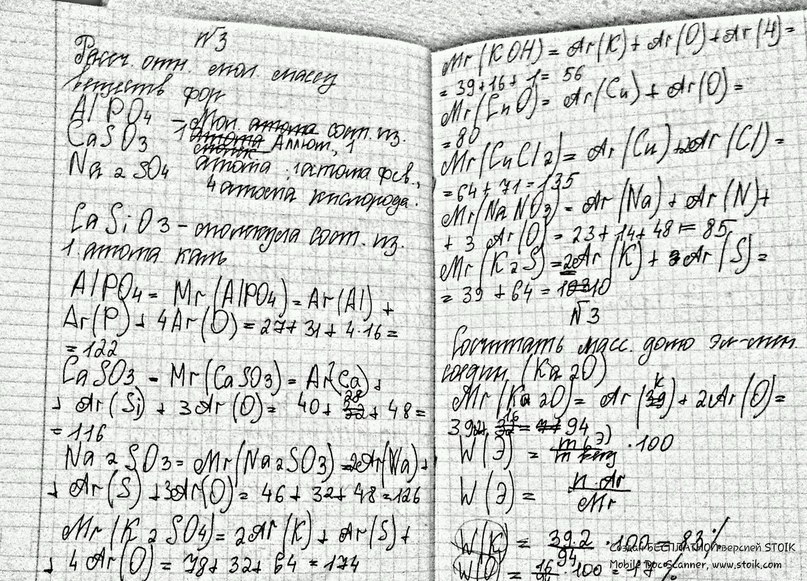 N3
Рассч. отн. мол. массу
веществ фор
AlPO4 - Мол. атома сост. из.
CaSO3 1 атома Алюм., 1
Na2SO4 атома, 1 атома фсв.,
4 атома кислорода.
CaSiO3 - молекула сост. из.
1 атома каль
AlPO4 = Mr(AlPO4) = Ar(Al) +
Ar(P) + 4Ar(O) = 27 + 31 + 4·16 =
= 122
CaSO3 - Mr(CaSO3) = Ar(Ca) +
+ Ar(Si) + 3Ar(O) = 40 + 28 + 48 =
= 116
Na2SO3 = Mr(Na2SO3) = 2Ar(Na) +
+ Ar(S) + 3Ar(O) = 46 + 32 + 48 = 126
Mr(K2SO4) = 2Ar(K) + Ar(S) +
+ 4Ar(O) = 78 + 32 + 64 = 174
Mr(KOH) = Ar(K) + Ar(O) + Ar(H) =
= 39 + 16 + 1 = 56
Mr(CuO) = Ar(Cu) + Ar(O) =
= 80
Mr(CuCl2) = Ar(Cu) + 2Ar(Cl) =
= 64 + 71 = 135
Mr(NaNO3) = Ar(Na) + Ar(N) +
+ 3 Ar(O) = 23 + 14 + 48 = 85
Mr(K2S) = 2Ar(K) + Ar(S) =
= 39 + 64 = 110
N3
Сосчитать масс. долю эл-тип
соедин (Ka2O)
Mr(Ka2O) = Ar(K) + 2Ar(O) =
39·2 + 16 = 94
W(Э) = m(Э) · 100
W(Э) = n·Ar / Mr
W(K) = 39·2 / 94 · 100 = 83%
W(O) = 16 / 94 · 100 = 17%
Создан БЕСПЛАТНОй версией STOIK
Mobile Doc Scanner, www.stoik.com